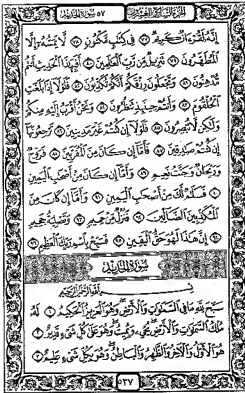 الجزء السابع والعشرون ٥٧ سورة الحديد
إِنَّهُ لَقُرْءَانٌ كَرِيمٌ ٧٧ فِى كِتَٰبٍ مَّكْنُونٍ ٧٨ لَّا يَمَسُّهُۥٓ إِلَّا
ٱلْمُطَهَّرُونَ ٧٩ تَنزِيلٌ مِّن رَّبِّ ٱلْعَٰلَمِينَ ٨٠ أَفَبِهَٰذَا ٱلْحَدِيثِ أَنتُم
مُّدْهِنُونَ ٨١ وَتَجْعَلُونَ رِزْقَكُمْ أَنَّكُمْ تُكَذِّبُونَ ٨٢ فَلَوْلَآ إِذَا بَلَغَتِ
ٱلْحُلْقُومَ ٨٣ وَأَنتُمْ حِينَئِذٍ تَنظُرُونَ ٨٤ وَنَحْنُ أَقْرَبُ إِلَيْهِ مِنكُمْ
وَلَٰكِن لَّا تُبْصِرُونَ ٨٥ فَلَوْلَآ إِن كُنتُمْ غَيْرَ مَدِينِينَ ٨٦ تَرْجِعُونَهَآ
إِن كُنتُمْ صَٰدِقِينَ ٨٧ فَأَمَّآ إِن كَانَ مِنَ ٱلْمُقَرَّبِينَ ٨٨ فَرَوْحٌ
وَرَيْحَانٌ وَجَنَّتُ نَعِيمٍ ٨٩ وَأَمَّآ إِن كَانَ مِنْ أَصْحَٰبِ ٱلْيَمِينِ
٩٠ فَسَلَٰمٌ لَّكَ مِنْ أَصْحَٰبِ ٱلْيَمِينِ ٩١ وَأَمَّآ إِن كَانَ مِنَ
ٱلْمُكَذِّبِينَ ٱلضَّآلِّينَ ٩٢ فَنُزُلٌ مِّنْ حَمِيمٍ ٩٣ وَتَصْلِيَةُ جَحِيمٍ
٩٤ إِنَّ هَٰذَا لَهُوَ حَقُّ ٱلْيَقِينِ ٩٥ فَسَبِّحْ بِٱسْمِ رَبِّكَ ٱلْعَظِيمِ ٩٦
سُورَةُ الحَدِيدِ
بِسْمِ ٱللَّهِ ٱلرَّحْمَٰنِ ٱلرَّحِيمِ
سَبَّحَ لِلَّهِ مَا فِى ٱلسَّمَٰوَٰتِ وَٱلْأَرْضِ وَهُوَ ٱلْعَزِيزُ ٱلْحَكِيمُ ١ لَهُۥ
مُلْكُ ٱلسَّمَٰوَٰتِ وَٱلْأَرْضِ يُحْىِۦ وَيُمِيتُ وَهُوَ عَلَىٰ كُلِّ شَىْءٍ قَدِيرٌ ٢
هُوَ ٱلْأَوَّلُ وَٱلْءَاخِرُ وَٱلظَّٰهِرُ وَٱلْبَاطِنُ وَهُوَ بِكُلِّ شَىْءٍ عَلِيمٌ ٣
٥٣٧